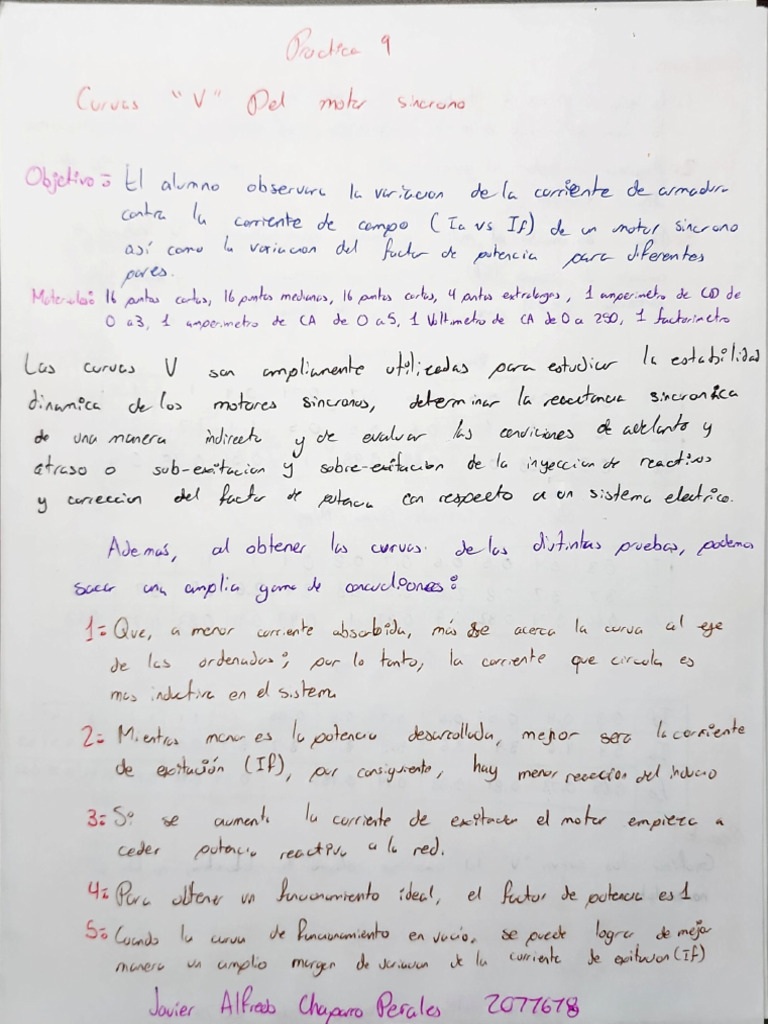 Practica 9
Curvas "V" Del motor sincrono
Objetivo: El alumno observara la variacion de la corriente de armadura
contra la corriente de campo (Ia vs If) de un motor sincrono
así como la variacion del factor de potencia para diferentes
pares.
Materiales: 16 puntas cortas, 16 puntas medianas, 16 puntas cortas, 4 puntas extralargas, 1 amperimetro de CD de
0 a 3, 1 amperimetro de CA de 0 a 5, 1 Voltimetro de CA de 0 a 250, 1 factorimetro
Las curvas V son ampliamente utilizadas para estudiar la estabilidad
dinamica de los motores sincronos, determinar la reactancia sincronica
de una manera indirecta y de evaluar las condiciones de adelanto y
atraso o sub-exitacion y sobre-exitacion de la inyeccion de reactivos
y correccion del factor de potencia con respecto a un sistema electrico.
Además, al obtener las curvas de las distintas pruebas, podemos
sacar una amplia gama de conclusiones:
1= Que, a menor corriente absorbida, más se acerca la curva al eje
de las ordenadas; por lo tanto, la corriente que circula es
mas inductiva en el sistema
2= Mientras menor es la potencia desarrollada, mejor sera la corriente
de exitación (If), por consiguiente, hay menor reacción del inducio
3= Si se aumenta la corriente de exitacion el motor empieza a
ceder potencia reactiva a la red.
4= Para obtener un funcionamiento ideal, el factor de potencia es 1
5= Cuando la curva de funcionamiento en vacío, se puede lograr de mejor
manera un amplio margen de variacion de la corriente de exitacion (If)
Javier Alfredo Chaparro Perales 2077678